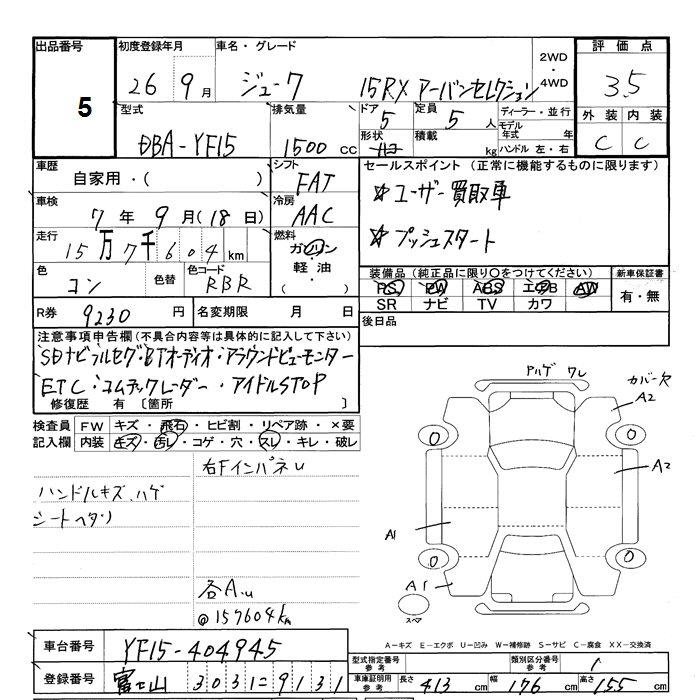 出品番号 初度登録年月 車名・グレード 2WD・4WD 評価点
5 26 9月 ジューク 15RX アーバンセレクション 3.5
型式 排気量 ドア 定員 ディーラー・並行 外装 内装
DBA-YF15 1500cc 5 5人 モデル年式 年 C C
形状 積載 kg ハンドル 左・右
車歴 シフト セールスポイント (正常に機能するものに限ります)
自家用・( ) FAT
車検 冷房 ☆ユーザー買取車
7年9月(18日) AAC
走行 燃料 ☆プッシュスタート
15万7千604km ガソリン
色 色替 色コード 軽油・( ) 装備品(純正品に限り〇をつけてください) 新車保証書
コン RBR PS PW ABS エアB AW 有・無
SR ナビ TV カワ
R券 9230円 名変期限 月 日 後日品
注意事項申告欄(不具合内容等は具体的に記入して下さい)
SDナビフルセグ・BTオーディオ・アラウンドビューモニター
ETC・コムテックレーダー・アイドルSTOP
修復歴 有 〔箇所 〕
検査員記入欄 FW キズ・飛石・ヒビ割・リペア跡・×要
内装 キズ・汚レ・コゲ・穴・スレ・キレ・破レ
右FインパネU
ハンドルキズ、ハゲ
シートヘタリ
各A.U
@157604km
ワレ カバー欠
A2
A2
A1
A1
0 0 0 0
スペア
A-キズ E-エクボ U-凹み W-補修跡 S-サビ C-腐食 XX-交換済
車台番号 YF15-404945
型式指定番号 参考 類別区分番号 参考
登録番号 富士山 303 に 9131
車庫証明用 参考 長さ 413cm 幅 176cm 高さ 155cm